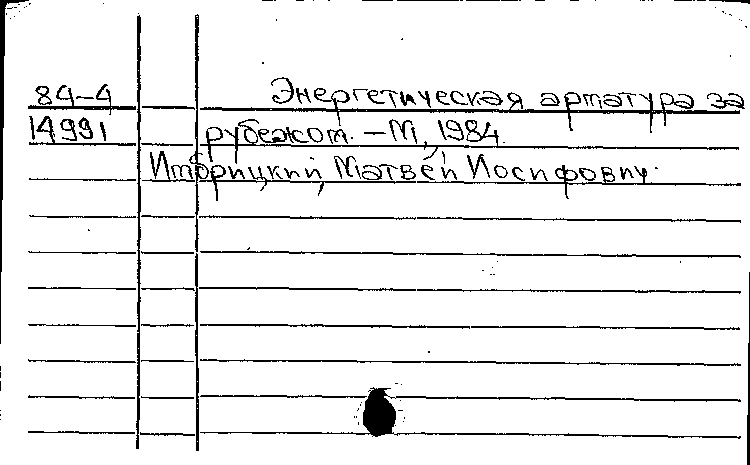 84-4 Энергетическая арматура за
14991 рубежом. – М., 1984.
Имбрицкий, Матвей Иосифович.